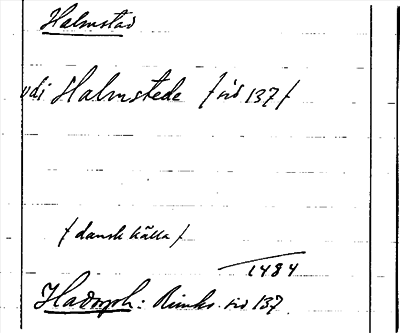 Halmstad
udi Halmstede / sid 137 /
/ dansk källa /
1484
Hadorph: Rimkr. sid 137.